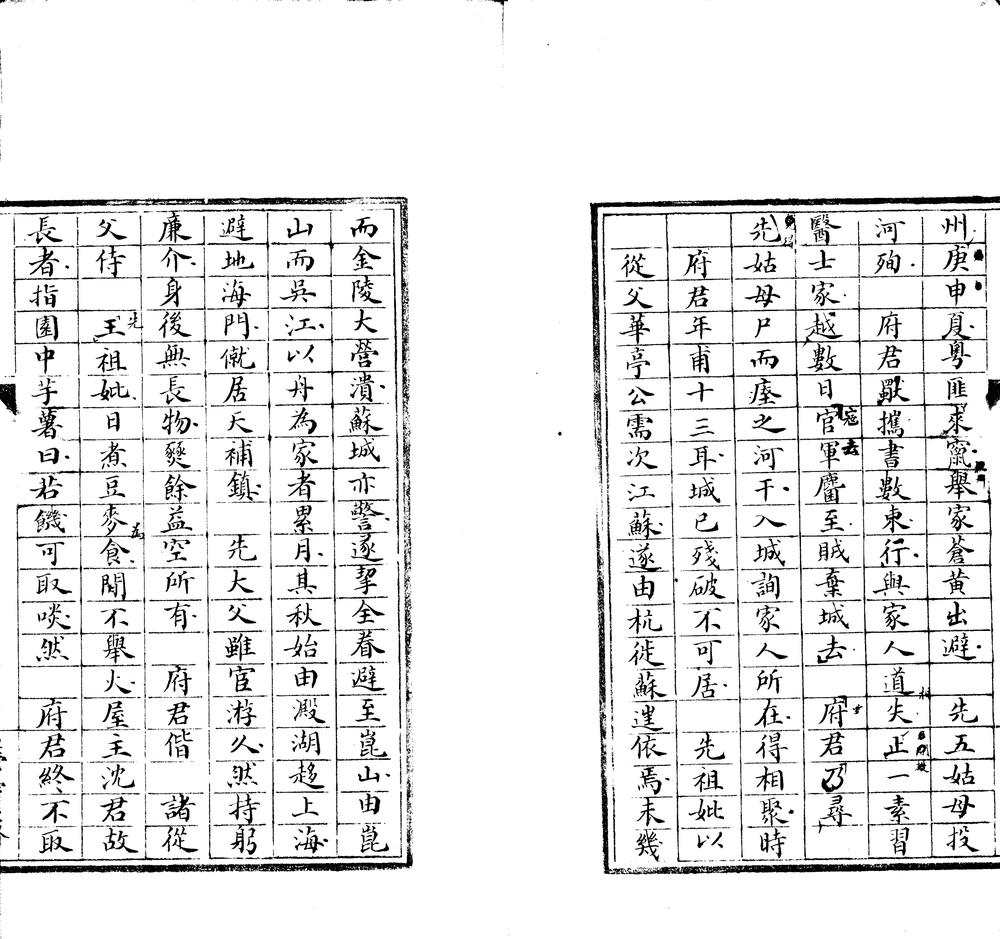 州庚申夏粵匪來竄舉家蒼黃出避先五姑母投
河殉府君獨攜書數束行與家人道失止一素習
醫士家越數日官軍麕至賊棄城去府君乃尋
先姑母尸而瘞之河干入城詢家人所在得相聚時
府君年甫十三耳城已殘破不可居先祖妣以
從父華亭公需次江蘇遂由杭徙蘇遑依焉未幾
而金陵大營潰蘇城亦警遂挈全眷避至崑山由崑
山而吳江以舟為家者累月其秋始由澱湖趍上海
避地海門僦居天補鎮先大父雖宦游久然持躬
廉介身後無長物爕餘益空所有府君偕諸從
父侍先王祖妣日煮豆麥為食間不舉火屋主沈君故
長者指園中芋薯曰若饑可取啖然府君終不取